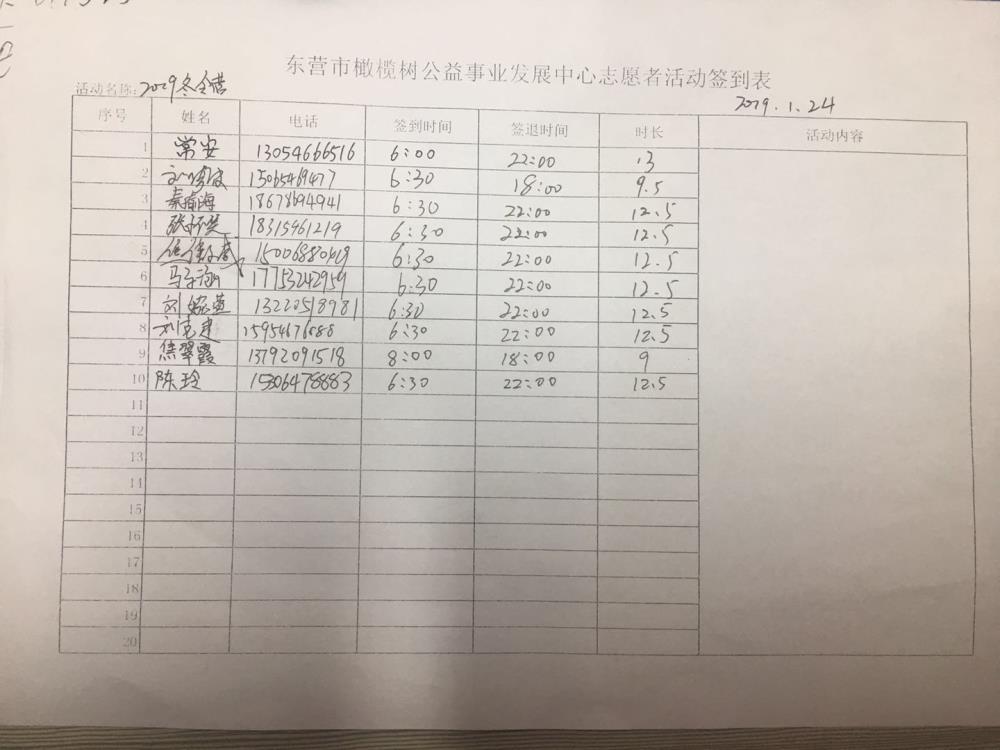 东营市橄榄树公益事业发展中心志愿者活动签到表
活动名称:2019冬令营 2019.1.24
序号 姓名 电话 签到时间 签退时间 时长 活动内容
1 常安 13054666516 6:00 22:00 13
2 15065469477 6:30 18:00 9.5
3 秦海 18678694941 6:30 22:00 12.5
4 张 18315961219 6:30 22:00 12.5
5 6:30 22:00 12.5
6 马子涵 17753242959 6:30 22:00 12.5
7 刘 13220518981 6:30 22:00 12.5
8 刘克建 6:30 22:00 12.5
9 焦翠霞 13792091518 8:00 18:00 9
10 陈玲 15306478883 6:30 22:00 12.5
11
12
13
14
15
16
17
18
19
20